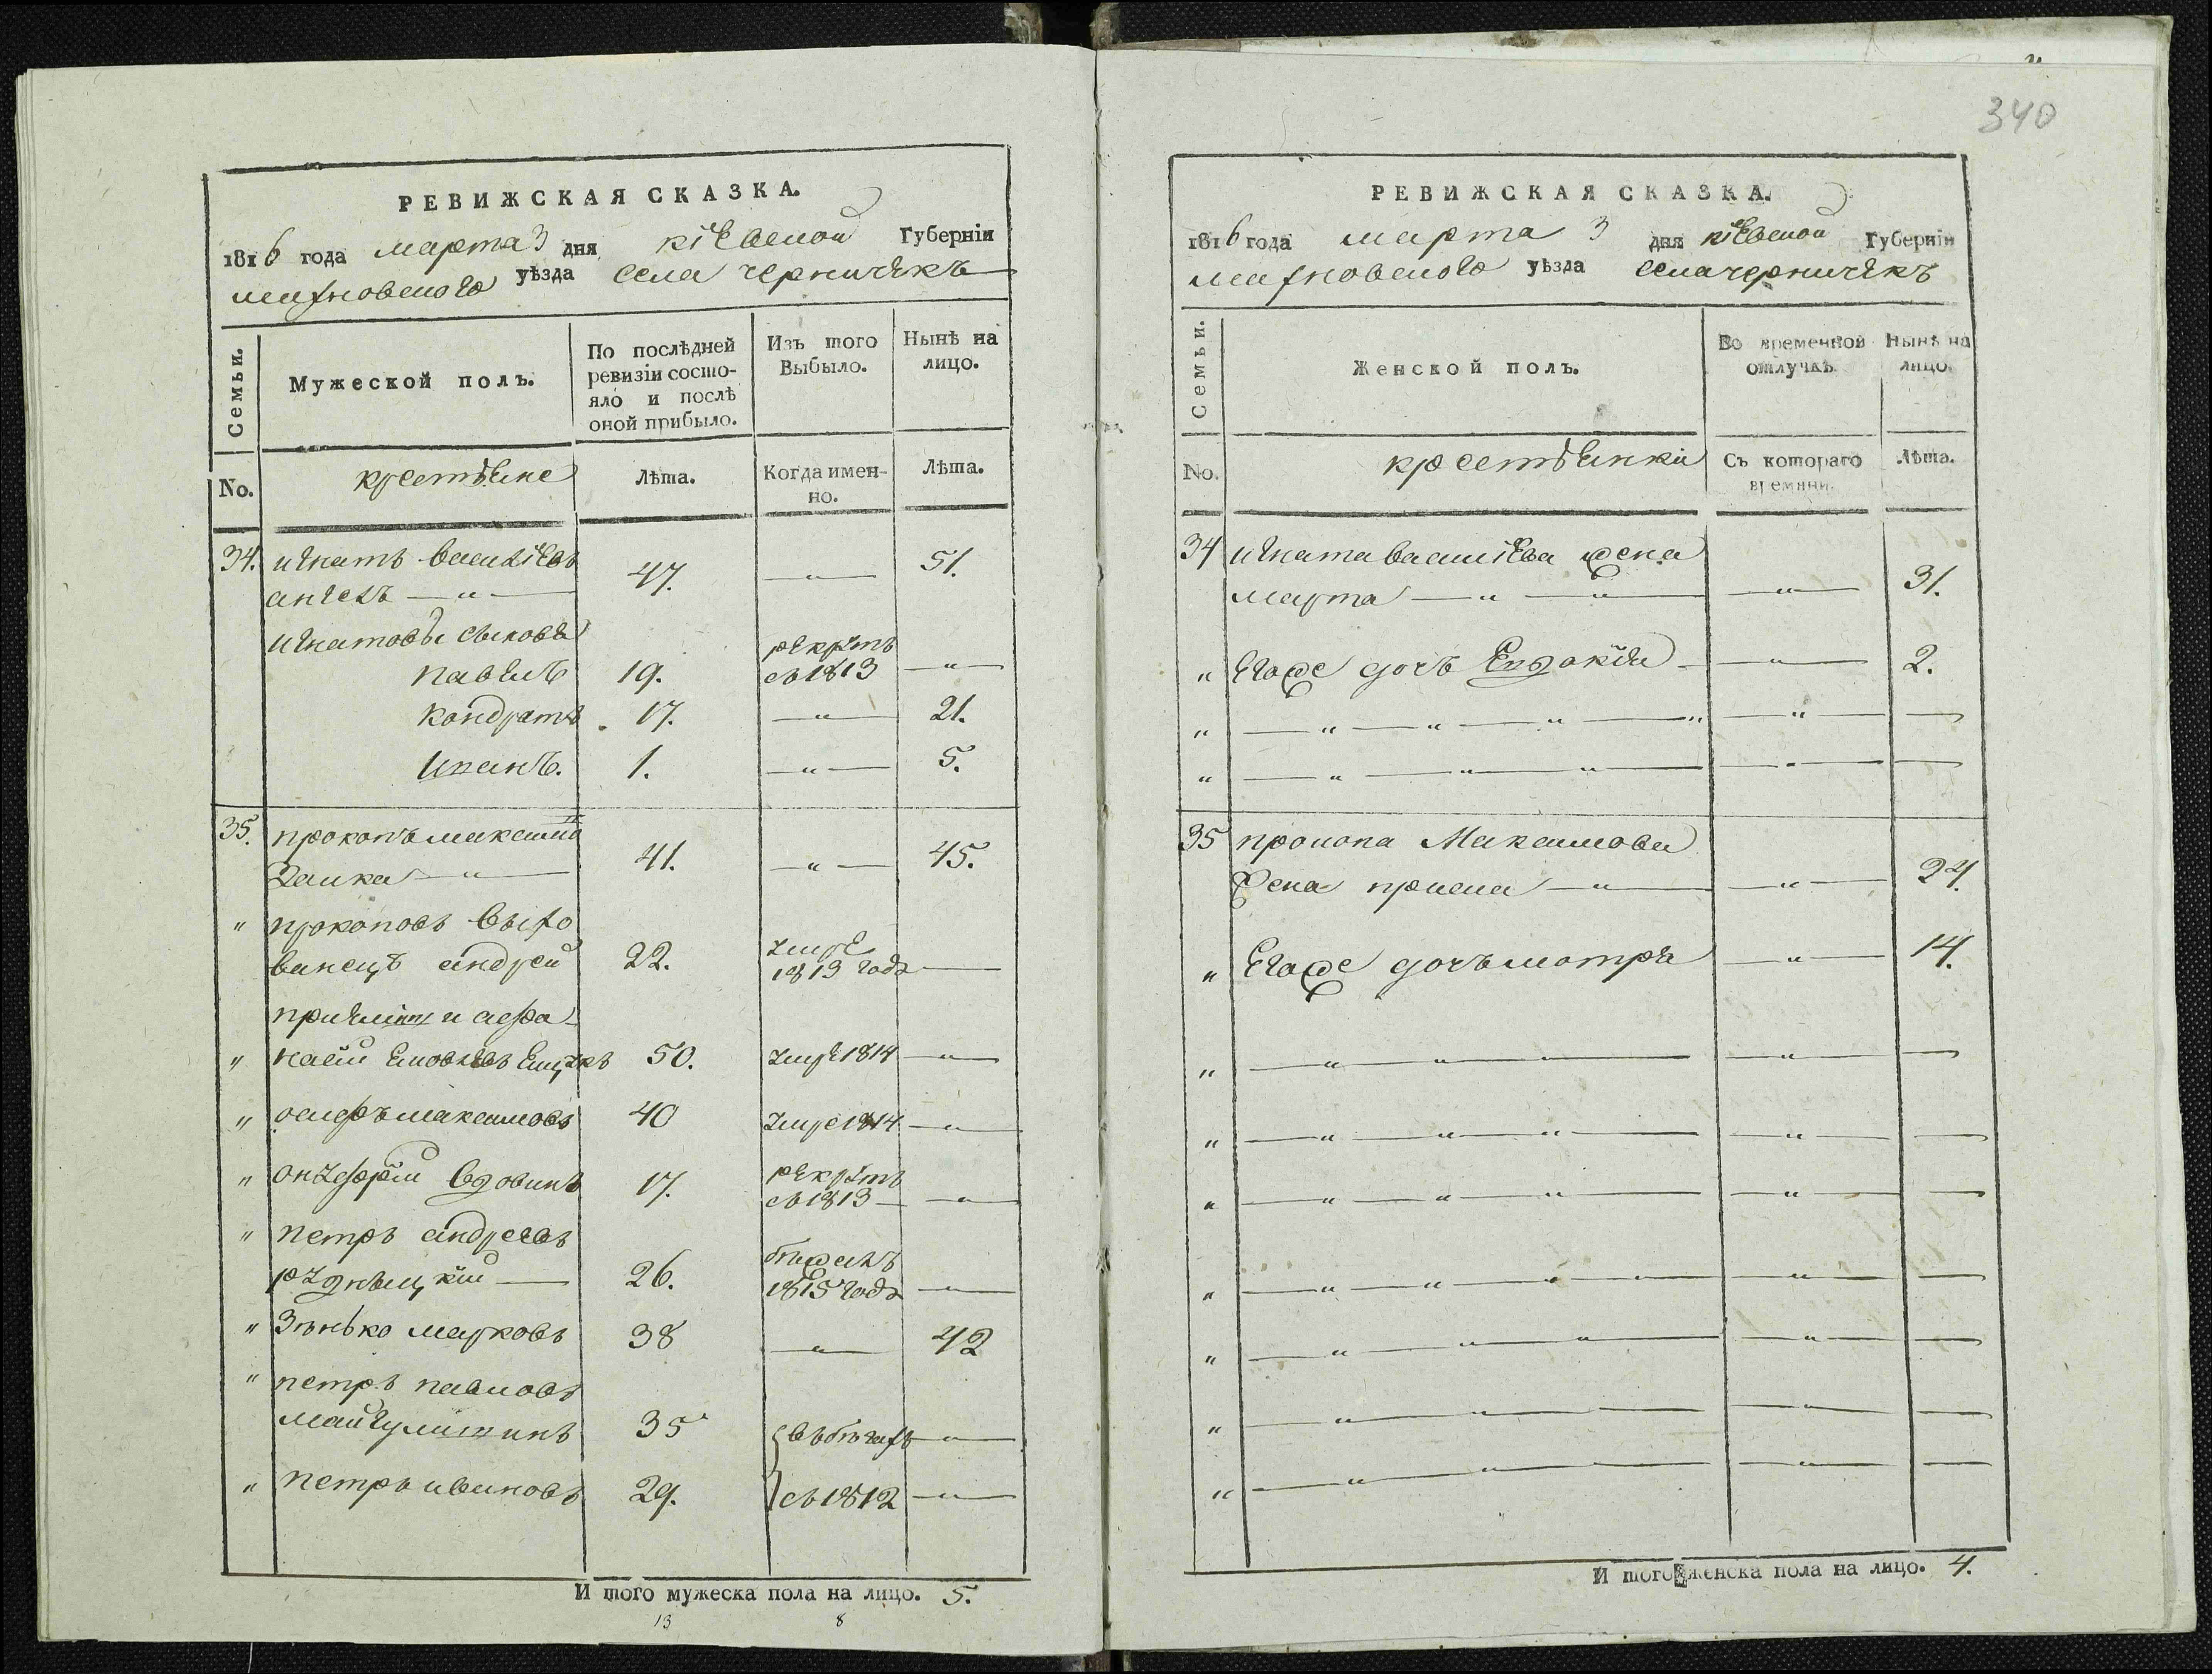 РЕВИЖСКАЯ СКАЗКА.
1816 года марта 3 дня кіевской Губерніи
махновского уѣзда села чернишекъ
Семьи.
Мужеской полъ.
По послѣдней
ревизіи состо-
яло и послѣ
оной прибыло.
Изъ того
Выбыло.
Нынѣ на
лицо.
No.
крестьяне
Лѣта.
Когда имен-
но.
Лѣта.
34. игнатъ василіевъ
47. — 51.
игнатовы сынове
павелъ 19. рекрутъ
съ 1813 —
кондратъ 17. — 21.
иванъ. 1. — 5.
35. прокопъ максимо
заика 41. — 45.
" прокоповъ выхо
ванецъ андрей 22. умре
1813 года —
" 50. умре 1814 —
" осифъ максимовъ 40 умре 1814 —
" онуфрій вдовинъ 17. рекрутъ
съ 1813 —
" петръ андреевъ
рудныцкій — 26. бежалъ
1815 года —
" Зѣнько марковъ 38 — 42
" петръ павловъ
35 въ бѣгахъ —
" петръ ивановъ 29. съ 1812 —
И того мужеска пола на лицо. 5.
13 8
340
РЕВИЖСКАЯ СКАЗКА.
1816 года марта 3 дня кіевской Губерніи
махновского уѣзда села чернишекъ
Семьи.
Женской полъ.
Во временной
отлучкѣ.
Нынѣ на
лицо.
No.
крестьянки
Съ котораго
времяни.
Лѣта.
34 игната василіева жена
марта — 31.
" Егоже дочъ Евдокія — 2.
" —
" —
35 прокопа Максимова
жена приска — 24.
" Егоже дочъ мотря — 14.
" —
" —
" —
" —
" —
" —
" —
И того женска пола на лицо. 4.